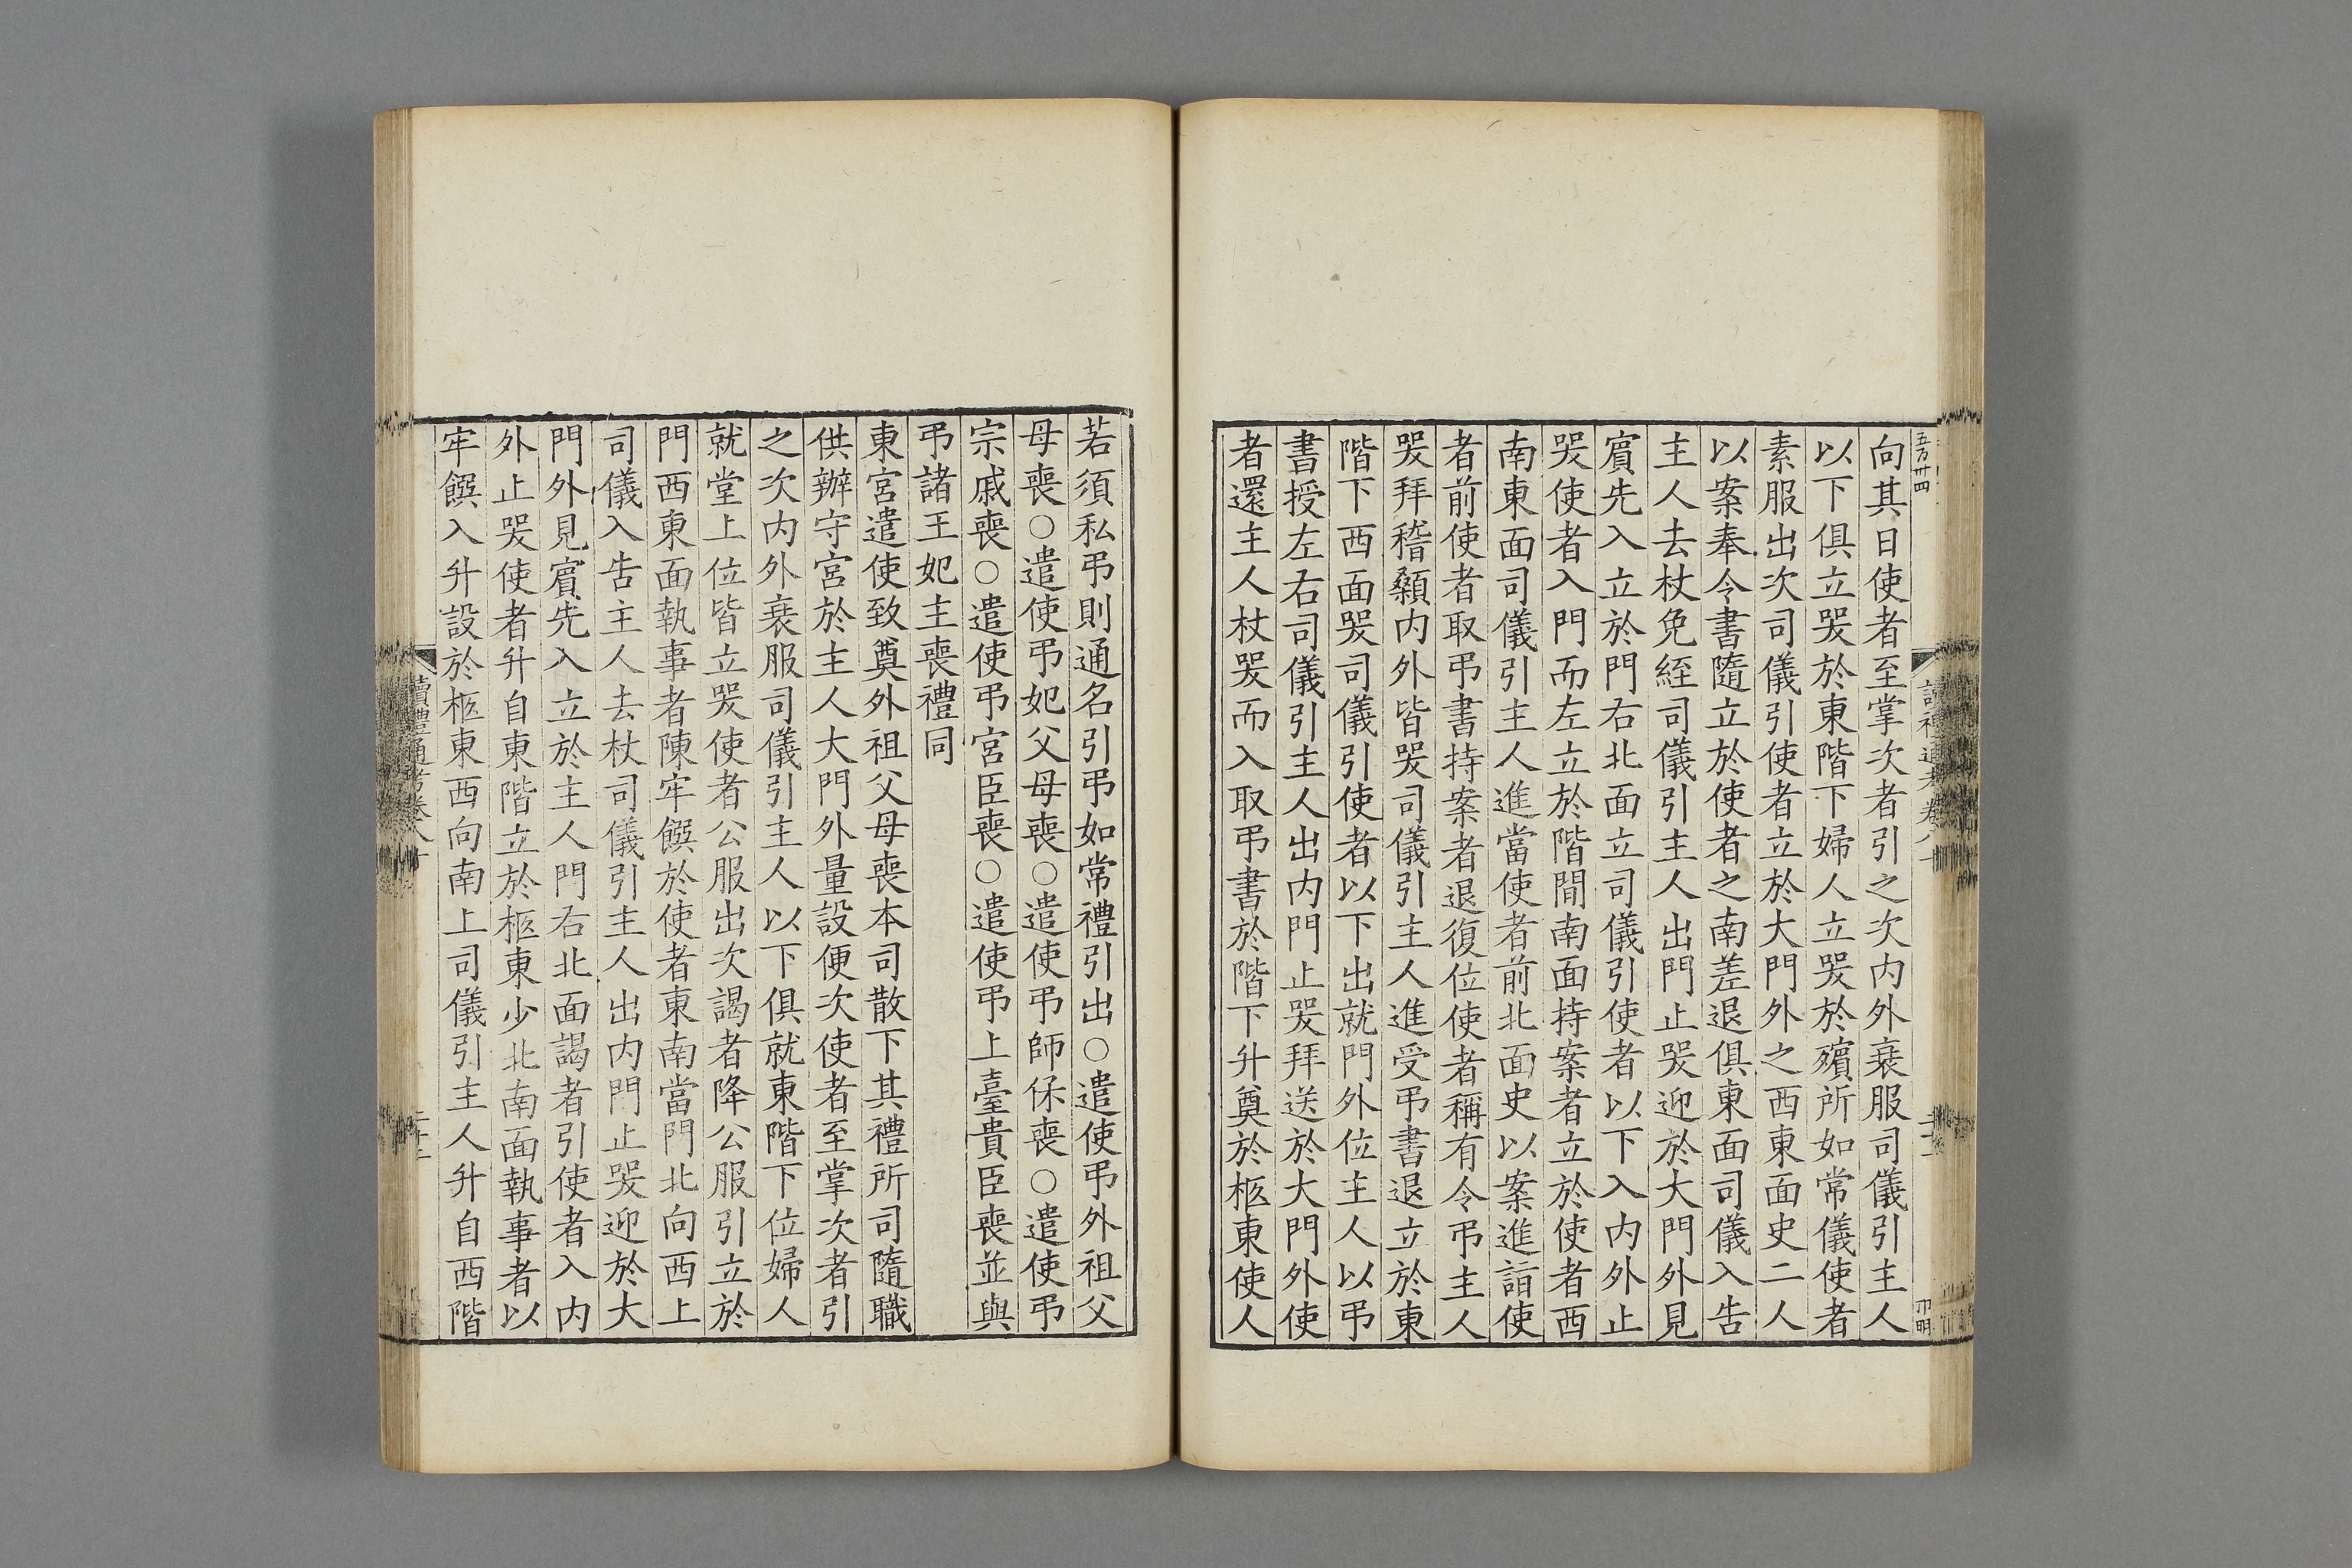 向其日使者至掌次者引之次内外衰服司儀引主人
以下俱立哭於東階下婦人立哭於殯所如常儀使者
素服出次司儀引使者立於大門外之西東面史二人
以案奉令書隨立於使者之南差退俱東面司儀入告
主人去杖免絰司儀引主人出門止哭迎於大門外見
賔先入立於門右北面立司儀引使者以下入内外止
哭使者入門而左立於階間南面持案者立於使者西
南東面司儀引主人進當使者前北面史以案進詣使
者前使者取弔書持案者退復位使者稱有令弔主人
哭拜稽顙内外皆哭司儀引主人進受弔書退立於東
階下西面哭司儀引使者以下出就門外位主人以弔
書授左右司儀引主人出内門止哭拜送於大門外使
者還主人杖哭而入取弔書於階下升奠於柩東使人
若須私弔則通名引弔如常禮引出○遣使弔外祖父
母喪○遣使弔妃父母喪○遣使弔師保喪○遣使弔
宗戚喪○遣使弔宮臣喪○遣使弔上臺貴臣喪並與
弔諸王妃主喪禮同
東宮遣使致奠外祖父母喪本司散下其禮所司隨職
供辦守宮於主人大門外量設便次使者至掌次者引
之次内外衰服司儀引主人以下俱就東階下位婦人
就堂上位皆立哭使者公服出次謁者降公服引立於
門西東面執事者陳牢饌於使者東南當門北向西上
司儀入告主人去杖司儀引主人出内門止哭迎於大
門外見賔先入立於主人門右北面謁者引使者入内
外止哭使者升自東階立於柩東少北南面執事者以
牢饌入升設於柩東西向南上司儀引主人升自西階
讀禮通考卷八十